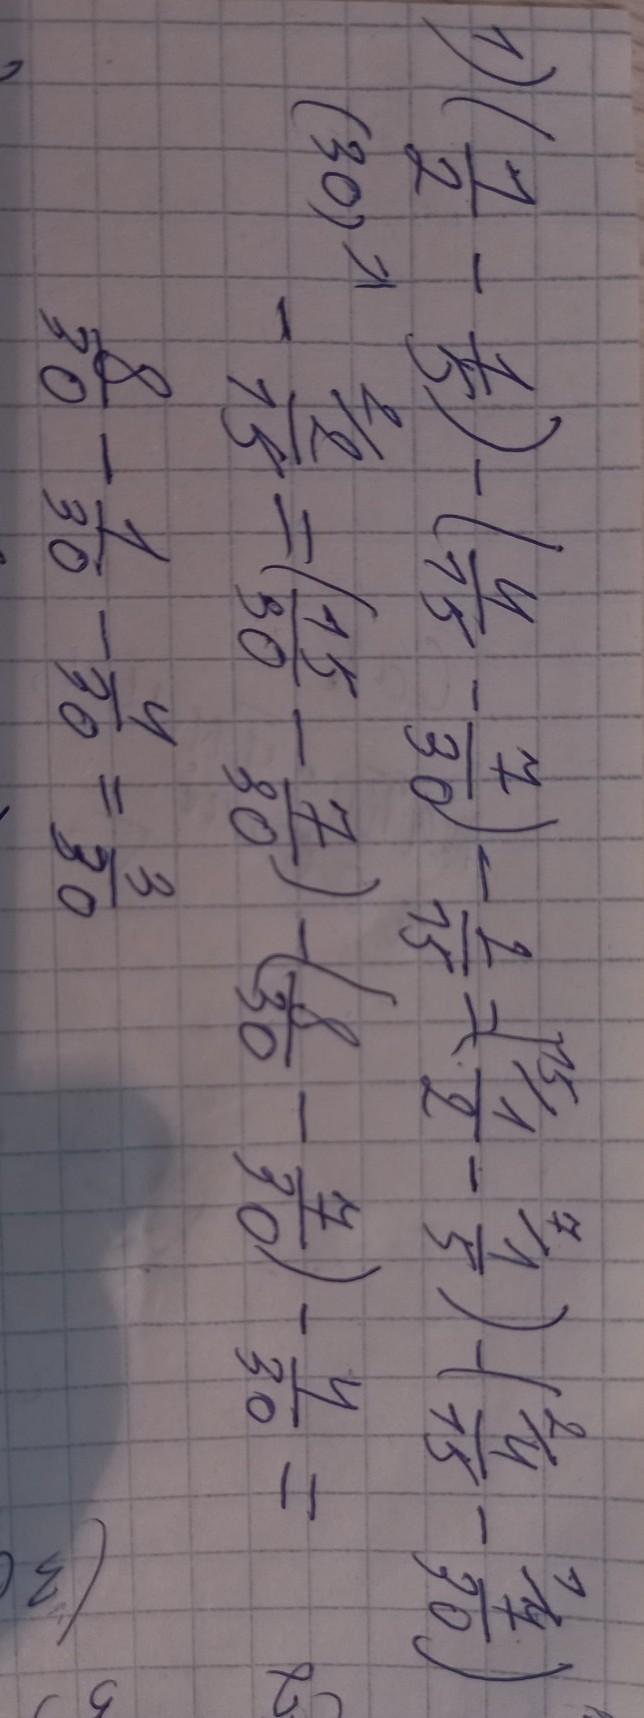 1) (1/2 - 1/5) - (4/15 - 7/30) - 2/15 = (¹⁵⁄1/2 - ⁷⁄1/5) - (²⁄4/15 - ¹⁄7/30)
(30)
- ²⁄2/15 = (15/30 - 7/30) - (8/30 - 7/30) - 4/30 =
8/30 - 1/30 - 4/30 = 3/30